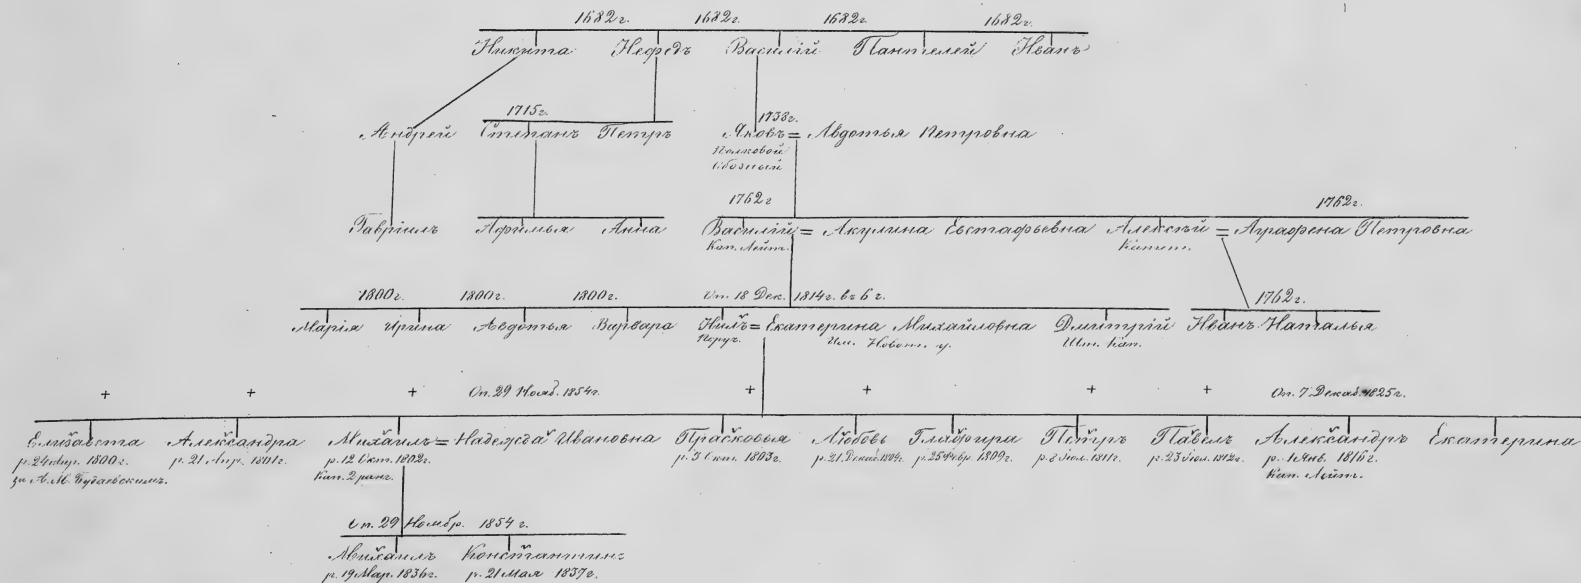 1682г. 1682г. 1682г. 1682г.
Никита Нефедъ Василій Пантелей Иванъ
1715г. 1738г.
Андрей Степанъ Петръ Яковъ = Авдотья Петровна
Полковой
Обозный
1762г 1762г.
Гавріилъ Афимья Анна Василій = Акулина Евстафьевна Алексѣй = Аграфена Петровна
Кап. Лейт. Капит.
1800г. 1800г. 1800г. Оп. 18 Дек. 1814г. въ 6 г. 1762г.
Марія Ирина Авдотья Варвара Нилъ = Екатерина Михайловна Дмитрій Иванъ Наталья
Поруч. Им. Новом. у. Шт. Кап.
+ + + Оп. 29 Нояб. 1854г. + + + + Оп. 7 Декаб. 1825г.
Елизавета Александра Михаилъ = Надежда Ивановна Прасковья Любовь Глафира Петръ Павелъ Александръ Екатерина
р. 24 Апр. 1800г. р. 21 Апр. 1801г. р. 12 Окт. 1802г. р. 3 Окт. 1803г. р. 21 Декаб. 1804г. р. 25 Февр. 1809г. р. 2 Іюл. 1811г. р. 23 Іюл. 1812г. р. 1 Янв. 1816г.
за А. М. Кап. 2 ранг. Кап. Лейт.
Оп. 29 Ноябр. 1854г.
Михаилъ Константинъ
р. 19 Мар. 1836г. р. 21 Мая 1837г.